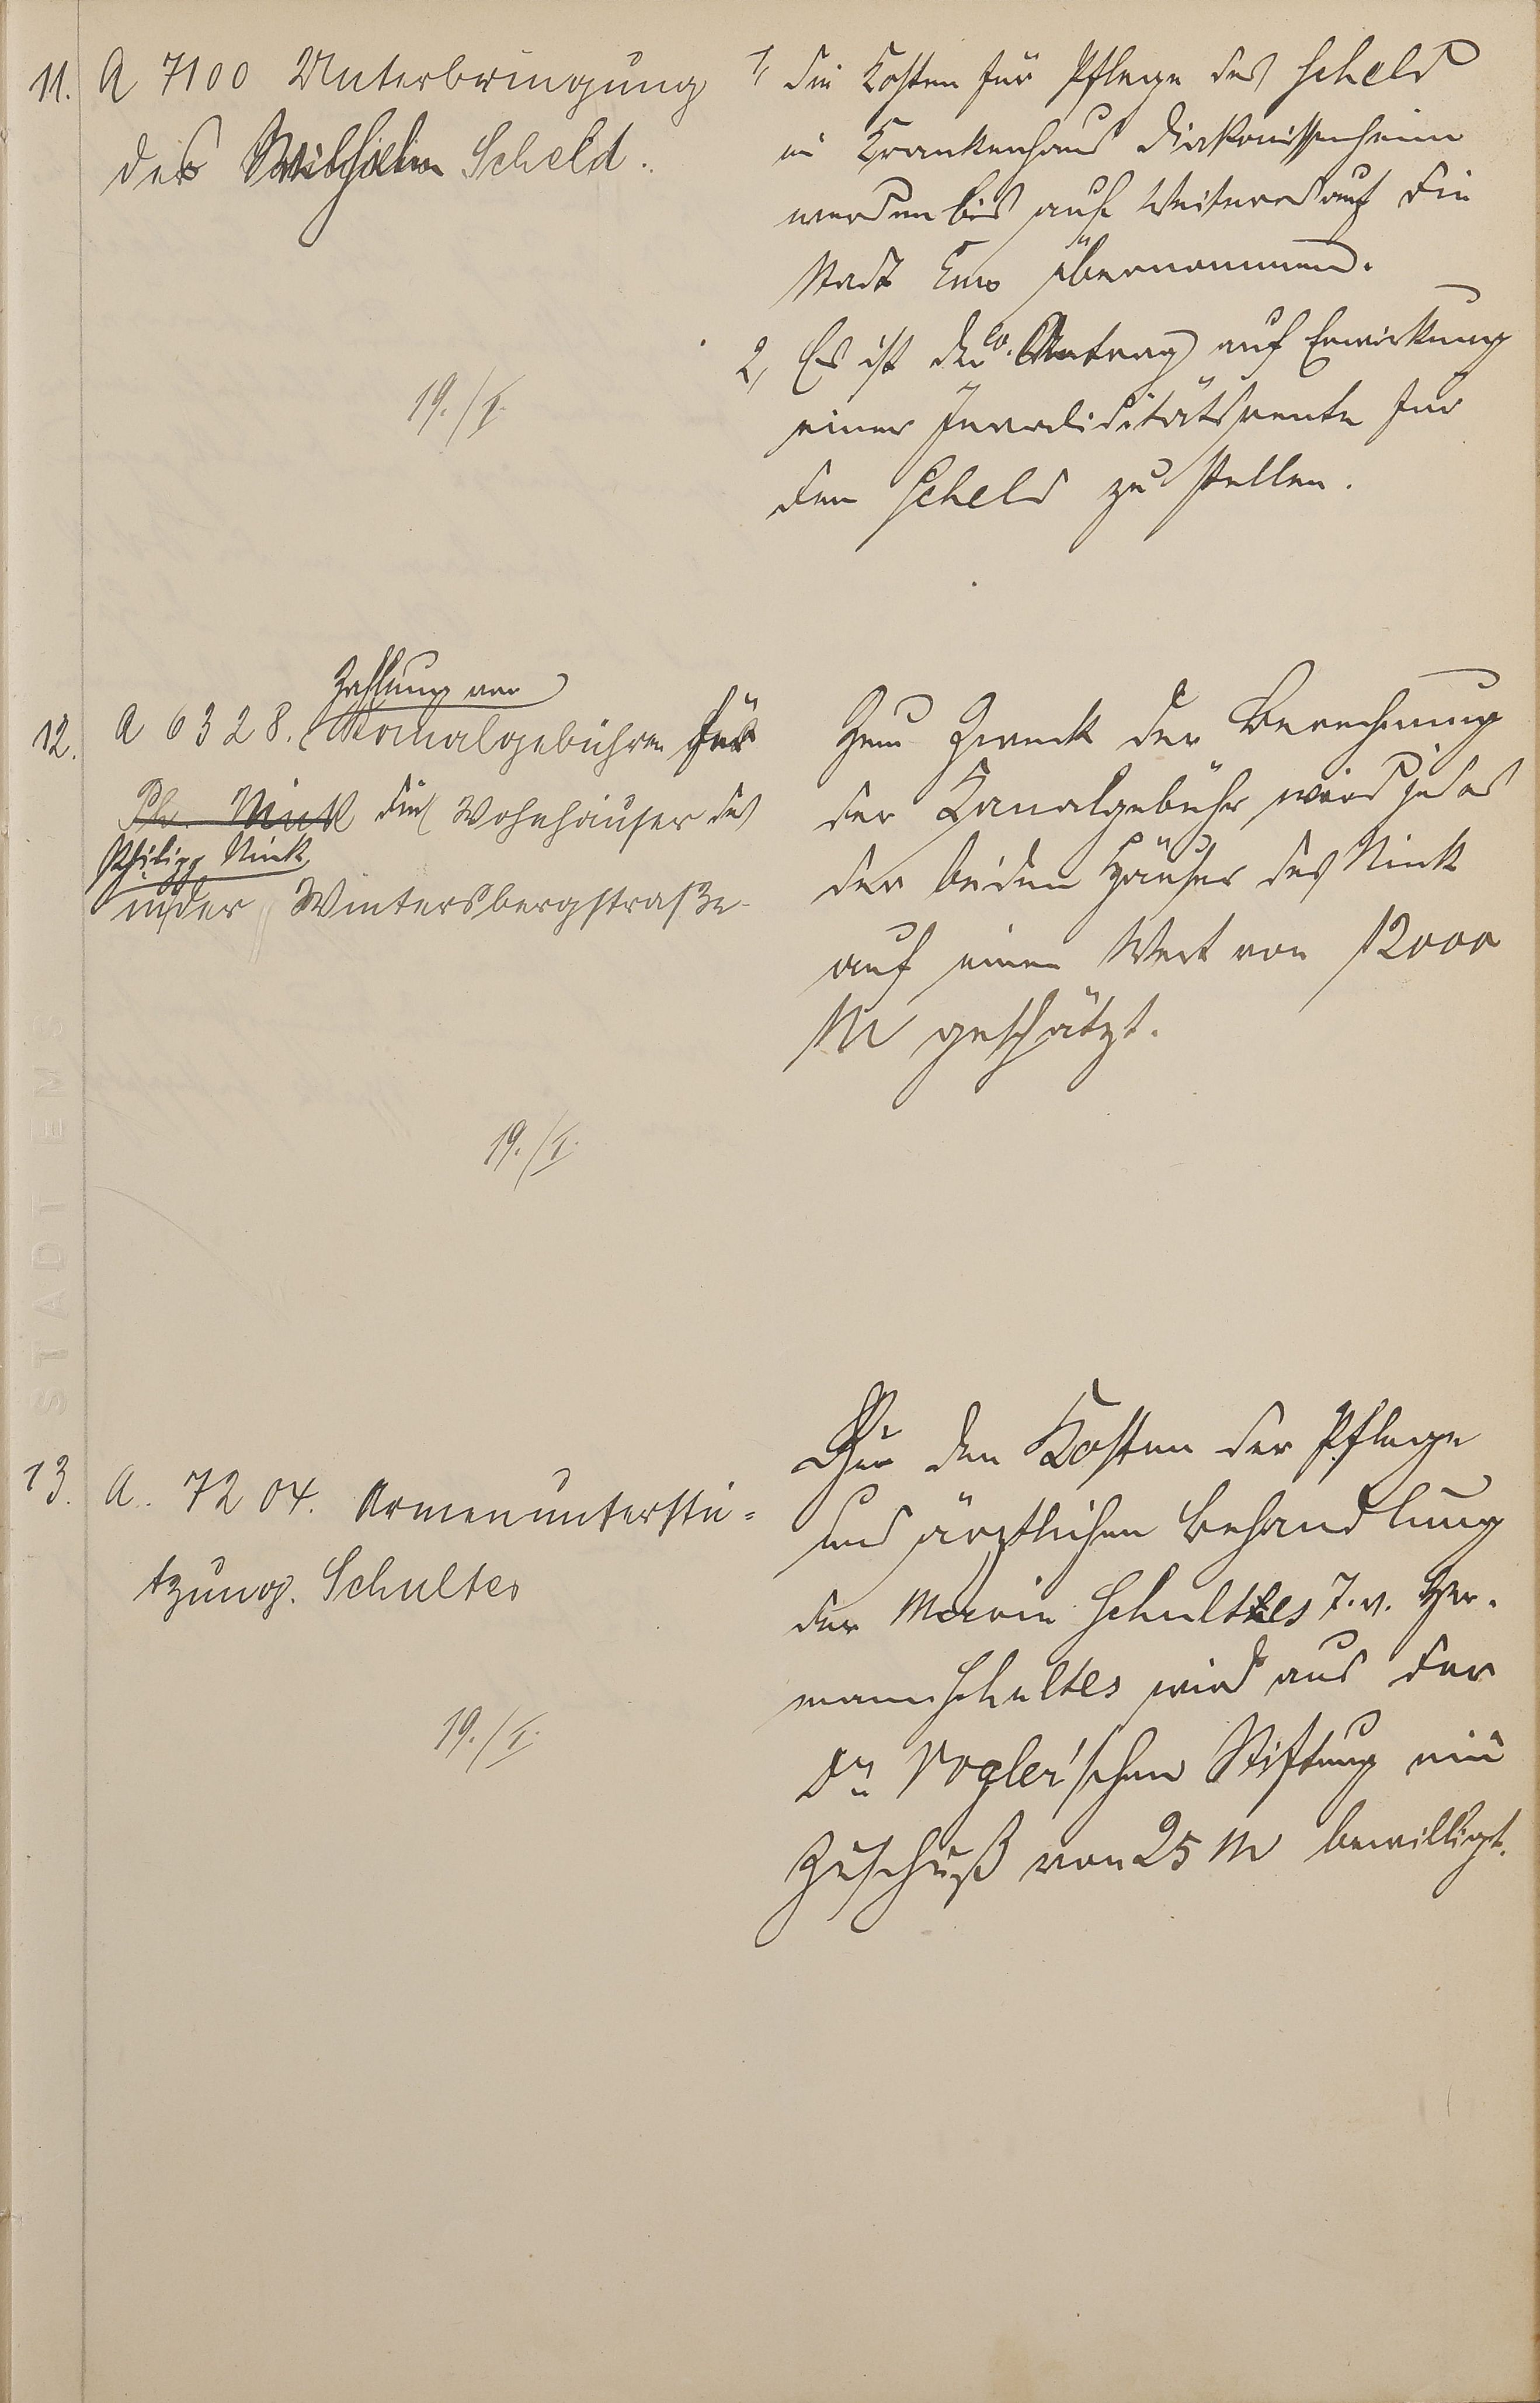 11. A 7100 Unterbringung
des Wilhelm Scheld.
19./I.
1, Die Kosten für Pflege des Scheld
im Krankenhaus Diakonissenheim
werden bis auf Weiteres auf die
Stadt Ems übernommen.
2, Es ist der Antrag auf Erwirkung
einer Invaliditätsrente für
den Scheld zu stellen.
Zahlung von
12. A 6328. Kanalgebühren für
Ph. Nink die Wohnhäuser des
Philipp Nink
in der Wintersbergstraße.
19./I.
Zum Zweck der Berechnung
der Kanalgebühr wird jedes
der beiden Häuser des Nink
auf einen Wert von 12000
M geschätzt.
19./I.
13. A. 7204. Armenunterstü-
tzung. Schultes
19./I.
Zu den Kosten der Pflege
und ärztlichen Behandlung
der Marie Schultes T. v. Her-
mann Schultes wird aus der
Dr. Vogler'schen Stiftung ein
Zuschuß von 25 M bewilligt.
STADT EMS